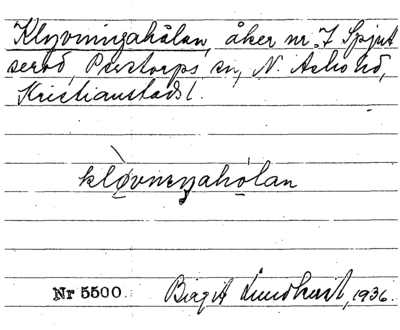 Klyvningahålan, åker nr 7 Spjut
seröd, Perstorps sn, N. Åsbo hd,
Kristianstads l.
kløvneŋaholan
Nr 5500 Birgit Lundkvist, 1936.